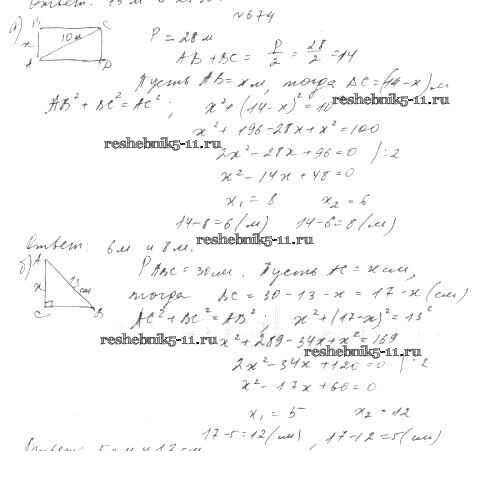 №674
а) B C
x 10м P = 28м
A D
AB + BC = P/2 = 28/2 = 14
Пусть AB = x м, тогда BC = (14 - x) м
AB² + BC² = AC² ; x² + (14 - x)² = 10
reshebnik5-11.ru
x² + 196 - 28x + x² = 100
reshebnik5-11.ru
2x² - 28x + 96 = 0 / : 2
x² - 14x + 48 = 0
x₁ = 8 x₂ = 6
14 - 8 = 6 (м) 14 - 6 = 8 (м)
reshebnik5-11.ru
Ответ: 6м и 8м.
б) A
x 13 см
C B
P ABC = 30м. Пусть AC = x см,
тогда BC = 30 - 13 - x = 17 - x (см)
AC² + BC² = AB² ; x² + (17 - x)² = 13²
reshebnik5-11.ru
x² + 289 - 34x + x² = 169
reshebnik5-11.ru
2x² - 34x + 120 = 0 / : 2
x² - 17x + 60 = 0
x₁ = 5 x₂ = 12
17 - 5 = 12 (см), 17 - 12 = 5 (см)